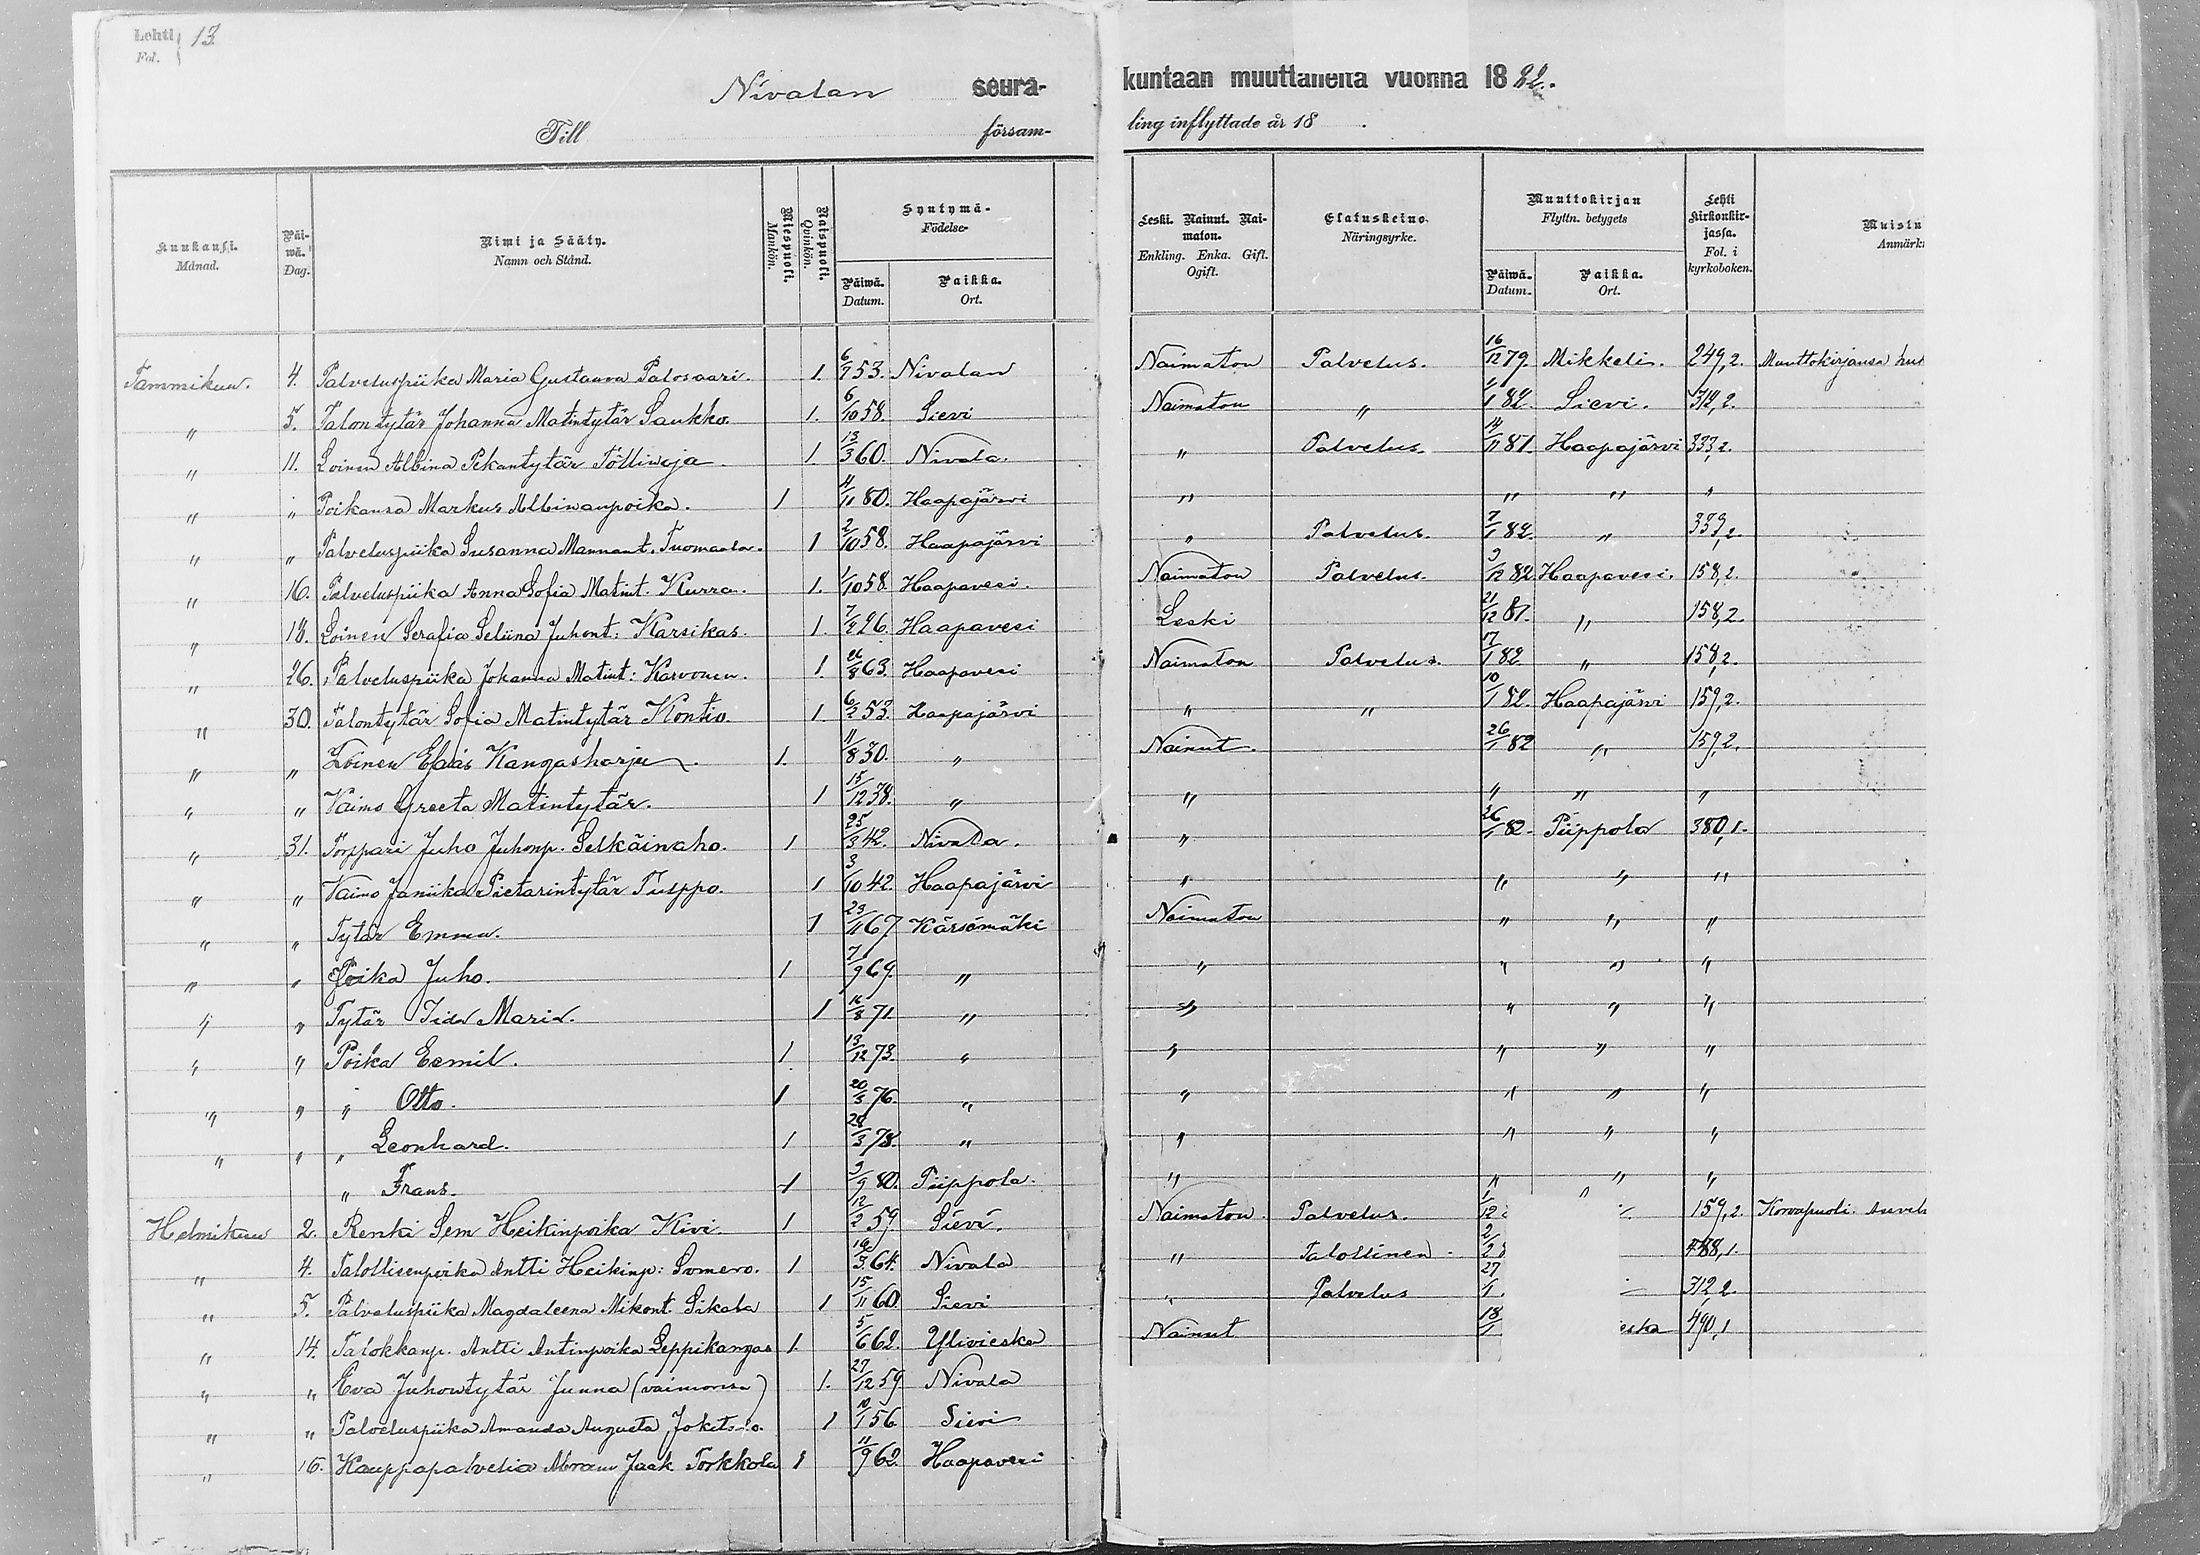 Lehti 13
Fol.
Nivalan seura- kuntaan muuttaneita vuonna 1882.
Till försam- ling inflyttade år 18 .
Kuukausi. Månad. Päiwä. Dag. Nimi ja Sääty. Namn och Stånd. Miespuoli. Mankön. Naispuoli. Qvinkön. Syntymä- Födelse- Päiwä. Datum. Paikka. Ort. Leski. Nainut. Naimaton. Enkling. Enka. Gift. Ogift. Elatuskeino. Näringsyrke. Muuttokirjan Flyttn. betygets Päiwä. Datum. Paikka. Ort. Lehti kirkonkirjassa. Fol. i kyrkoboken. Muistu Anmärk
Tammikuu. 4. Palveluspiika Maria Gustaava Palosaari. 1. 6/9 53. Nivalan Naimaton Palvelus. 16/12 79. Mikkeli. 249,2. Muuttokirjansa
" 5. Talontytär Johanna Matintytär Saukko. 1. 6/10 58. Sievi Naimaton " 1/1 82. Sievi. 312,2.
" 11. Loinen Albina Pekantytär 1. 13/3 60. Nivala. " Palvelus. 14/11 81. Haapajärvi 333,2.
" " Poikansa Markus Albinanpoika. 1 4/11 80. Haapajärvi " " " "
" " Palveluspiika Susanna Mannant. Tuomaala. 1 2/10 58. Haapajärvi " Palvelus. 7/1 82. " 339,2
" 16. Palveluspiika Anna Sofia Matint. Kurra. 1. 1/10 58. Haapavesi. Naimaton Palvelus. 9/12 82 Haapavesi. 158,2.
" 18. Loinen Serafia Seliina Juhont: Karsikas. 1. 7/2 26. Haapavesi Leski 21/12 81. " 158,2.
" 26. Palveluspiika Johanna Matint: Karvonen. 1. 26/8 63. Haapavesi Naimaton Palvelus. 17/1 82 " 158,2.
" 30. Talontytär Sofia Matintytär Kontio. 1 6/2 53. Haapajärvi " " 10/1 82. Haapajärvi 159,2.
" " Loinen Elias Kangasharju. 1. 11/8 30. " Nainut. 26/1 82 " 159,2.
" " Vaimo Greeta Matintytär. 1 15/12 38. " " " " "
" 31. Torppari Juho Juhonp. Selkäinaho. 1 25/3 42. Nivala. " 26/1 82. Piippola 380,1.
" " Vaimo Janika Pietarintytär 1 3/10 42. Haapajärvi " " " "
" " Tytär Emma. 1 23/11 67. Kärsämäki Naimaton " " "
" " Poika Juho. 1 7/9 69. " " " " "
" " Tytär Iida Maria. 1 16/8 71. " " " " "
" " Poika Eemil. 1. 13/12 73. " " " " "
" " " Otto. 1 20/5 76. " " " " "
" " " Leonhard. 1 28/3 78. " " " " "
" Frans. 1 9/9 80. Piippola. " " " "
Helmikuu 2. Renki Sem Heikinpoika Kivi. 1 12/2 59 Sievi. Naimaton. Palvelus. 1/12 159,2. Korvapuoli.
" 4. Talollisenpoika Antti Heikinp: Somero. 1 19/3 64. Nivala " Talollinen. 2/2 488,1.
" 5. Palveluspiika Magdaleena Mikont. Sikala 1 15/11 60. Sievi " Palvelus 27/1 312,2.
" 14. Talokkanp. Antti Antinpoika Leppikangas 1. 5/6 62. Ylivieska Nainut 18/1 eska 490,1
" " Eva Juhontytär Junna (vaimonsa) 1. 27/12 59 Nivala
" " Palveluspiika Amanda Augusta 1 10/1 56 Sievi
" 16. Kauppapalvelia Abram Jaak Torkkola 1 11/9 62. Haapavesi